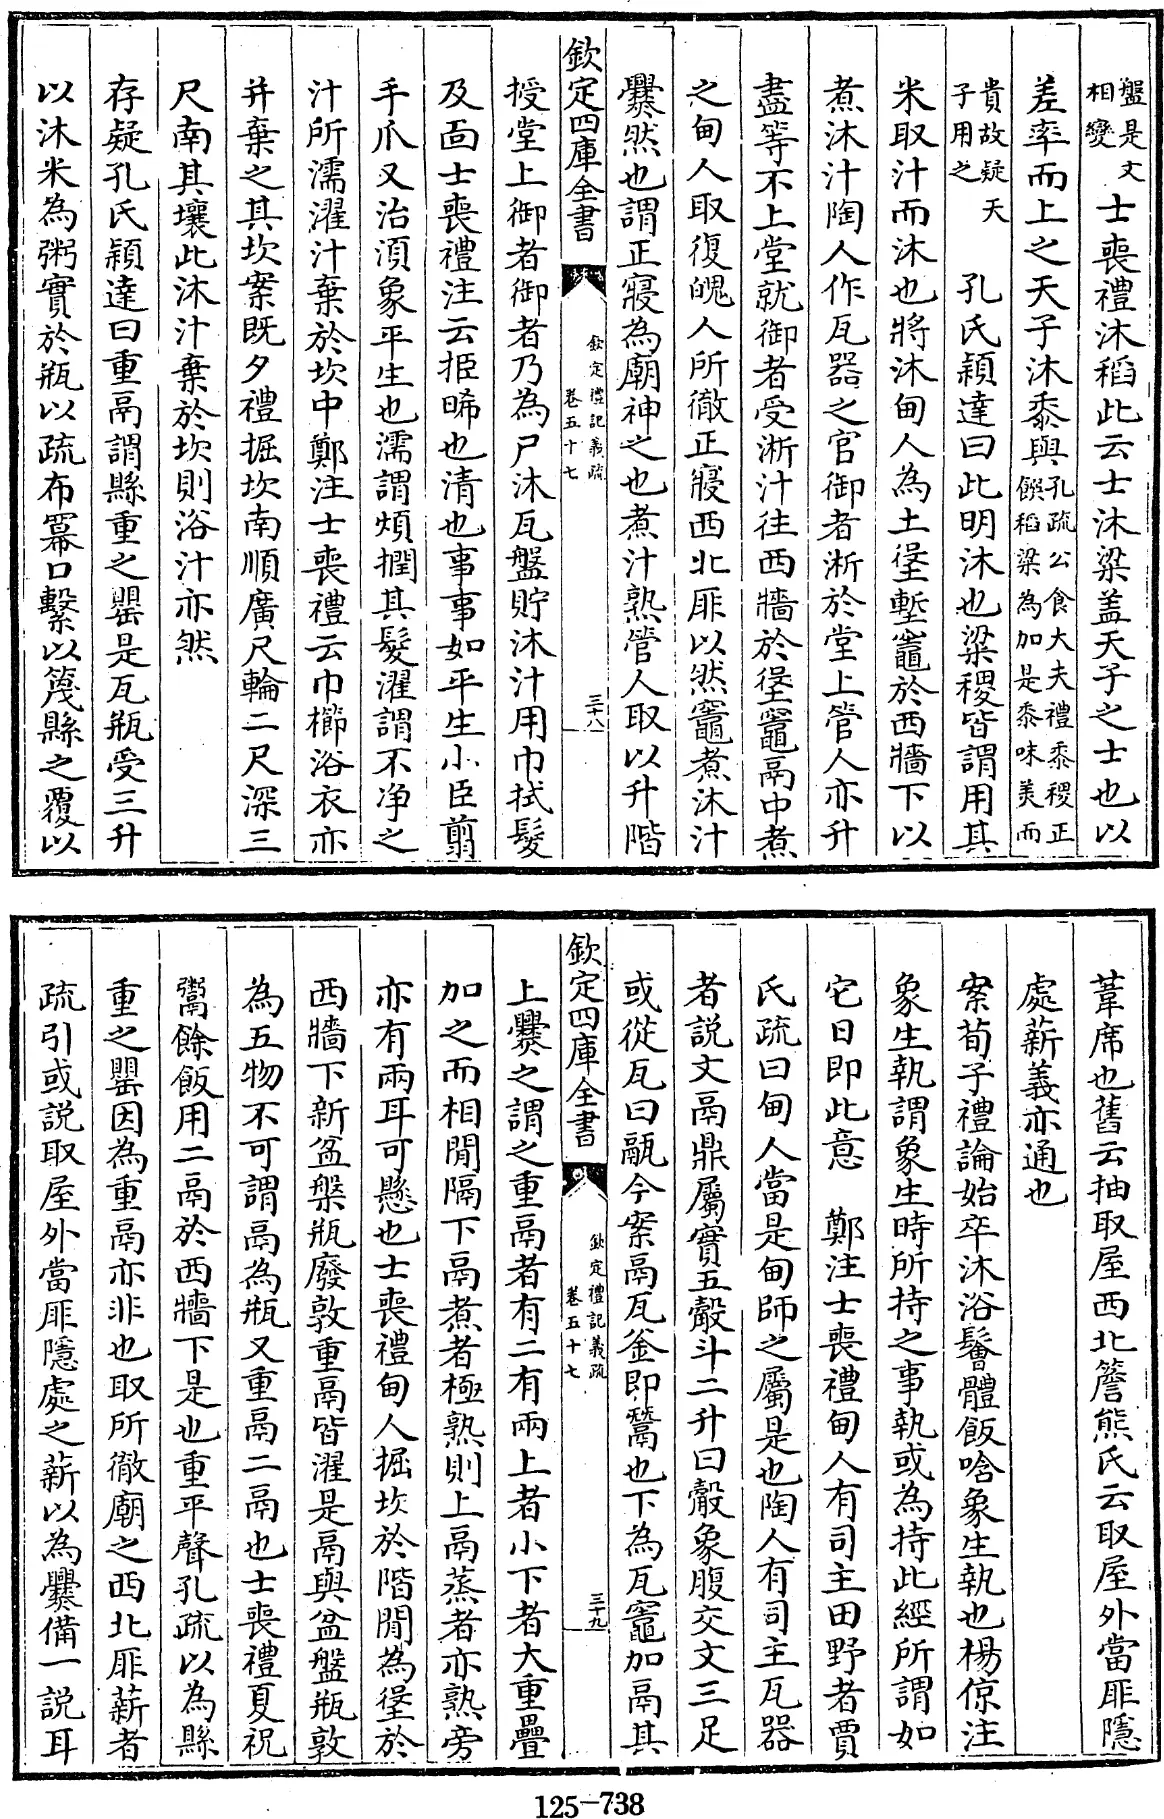 盤是文相變士喪禮沐稻此云士沐粱盖天子之士也以
差率而上之天子沐黍與孔疏公食大夫禮黍稷正饌稻粱為加是黍味美而
貴故疑天子用之 孔氏穎達曰此明沐也粱稷皆謂用其
米取汁而沐也將沐甸人為土垼塹竈於西牆下以
煮沐汁陶人作瓦器之官御者淅於堂上管人亦升
盡等不上堂就御者受淅汁往西牆於垼竈鬲中煮
之甸人取復魄人所徹正寢西北厞以然竈煮沐汁
爨然也謂正寢為廟神之也煮汁熟管人取以升階
欽定四庫全書 欽定禮記義疏 卷五十七 三十八
授堂上御者御者乃為尸沐瓦盤貯沐汁用巾拭髮
及面士喪禮注云挋晞也清也事事如平生小臣翦
手爪又治須象平生也濡謂煩撋其髮濯謂不净之
汁所濡濯汁棄於坎中鄭注士喪禮云巾櫛浴衣亦
并棄之其坎案既夕禮掘坎南順廣尺輪二尺深三
尺南其壤此沐汁棄於坎則浴汁亦然
存疑孔氏穎達曰重鬲謂縣重之罌是瓦瓶受三升
以沐米為粥實於瓶以疏布冪口繫以篾縣之覆以
葦席也舊云抽取屋西北簷熊氏云取屋外當厞隱
處薪義亦通也
案荀子禮論始卒沐浴鬠體飯唅象生執也楊倞注
象生執謂象生時所持之事執或為持此經所謂如
它日即此意 鄭注士喪禮甸人有司主田野者賈
氏疏曰甸人當是甸師之屬是也陶人有司主瓦器
者説文鬲鼎屬實五觳斗二升曰觳象腹交文三足
或從瓦曰䰛今案鬲瓦釜即鬵也下為瓦竈加鬲其
欽定四庫全書 欽定禮記義疏 卷五十七 三十九
上爨之謂之重鬲者有二有兩上者小下者大重疊
加之而相閒隔下鬲煮者極熟則上鬲蒸者亦熟旁
亦有兩耳可懸也士喪禮甸人掘坎於階閒為垼於
西牆下新盆槃瓶廢敦重鬲皆濯是鬲與盆盤瓶敦
為五物不可謂鬲為瓶又重鬲二鬲也士喪禮夏祝
鬻餘飯用二鬲於西牆下是也重平聲孔疏以為縣
重之罌因為重鬲亦非也取所徹廟之西北厞薪者
疏引或説取屋外當厞隱處之薪以為爨備一説耳
125-738